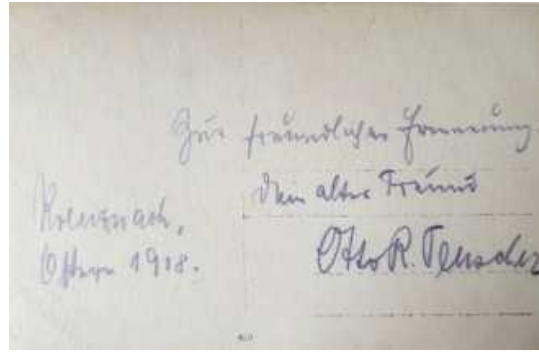 Zur freundlichen Erinnerung.
Dein alter Freund
Otto R. Teuscher
Kreuznach,
Ostern 1918.